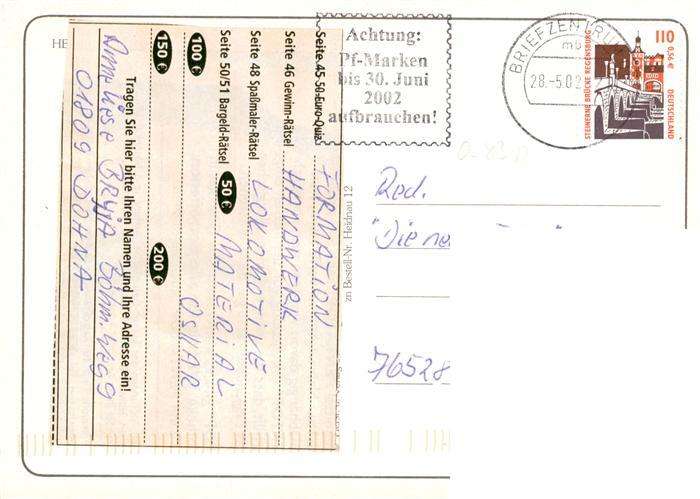 HE
Achtung:
Pf-Marken
bis 30. Juni
2002
aufbrauchen!
BRIEFZENTRUM
28.-5.02
110
0,56 €
DEUTSCHLAND
STEINERNE BRÜCKE REGENSBURG
Red.
"Die ne
76528
zu Bestell-Nr. Heidnau 12
Seite 45 50-Euro-Quiz FORMATION
Seite 46 Gewinn-Rätsel HANDWERK
Seite 48 Spaßmaler-Rätsel LOKOMOTIVE
Seite 50/51 Bargeld-Rätsel
50 € MATERIAL
100 € OSKAR
150 € 200 €
Tragen Sie hier bitte Ihren Namen und Ihre Adresse ein!
Bryja Böhm. Weg 9
01809 DOHNA